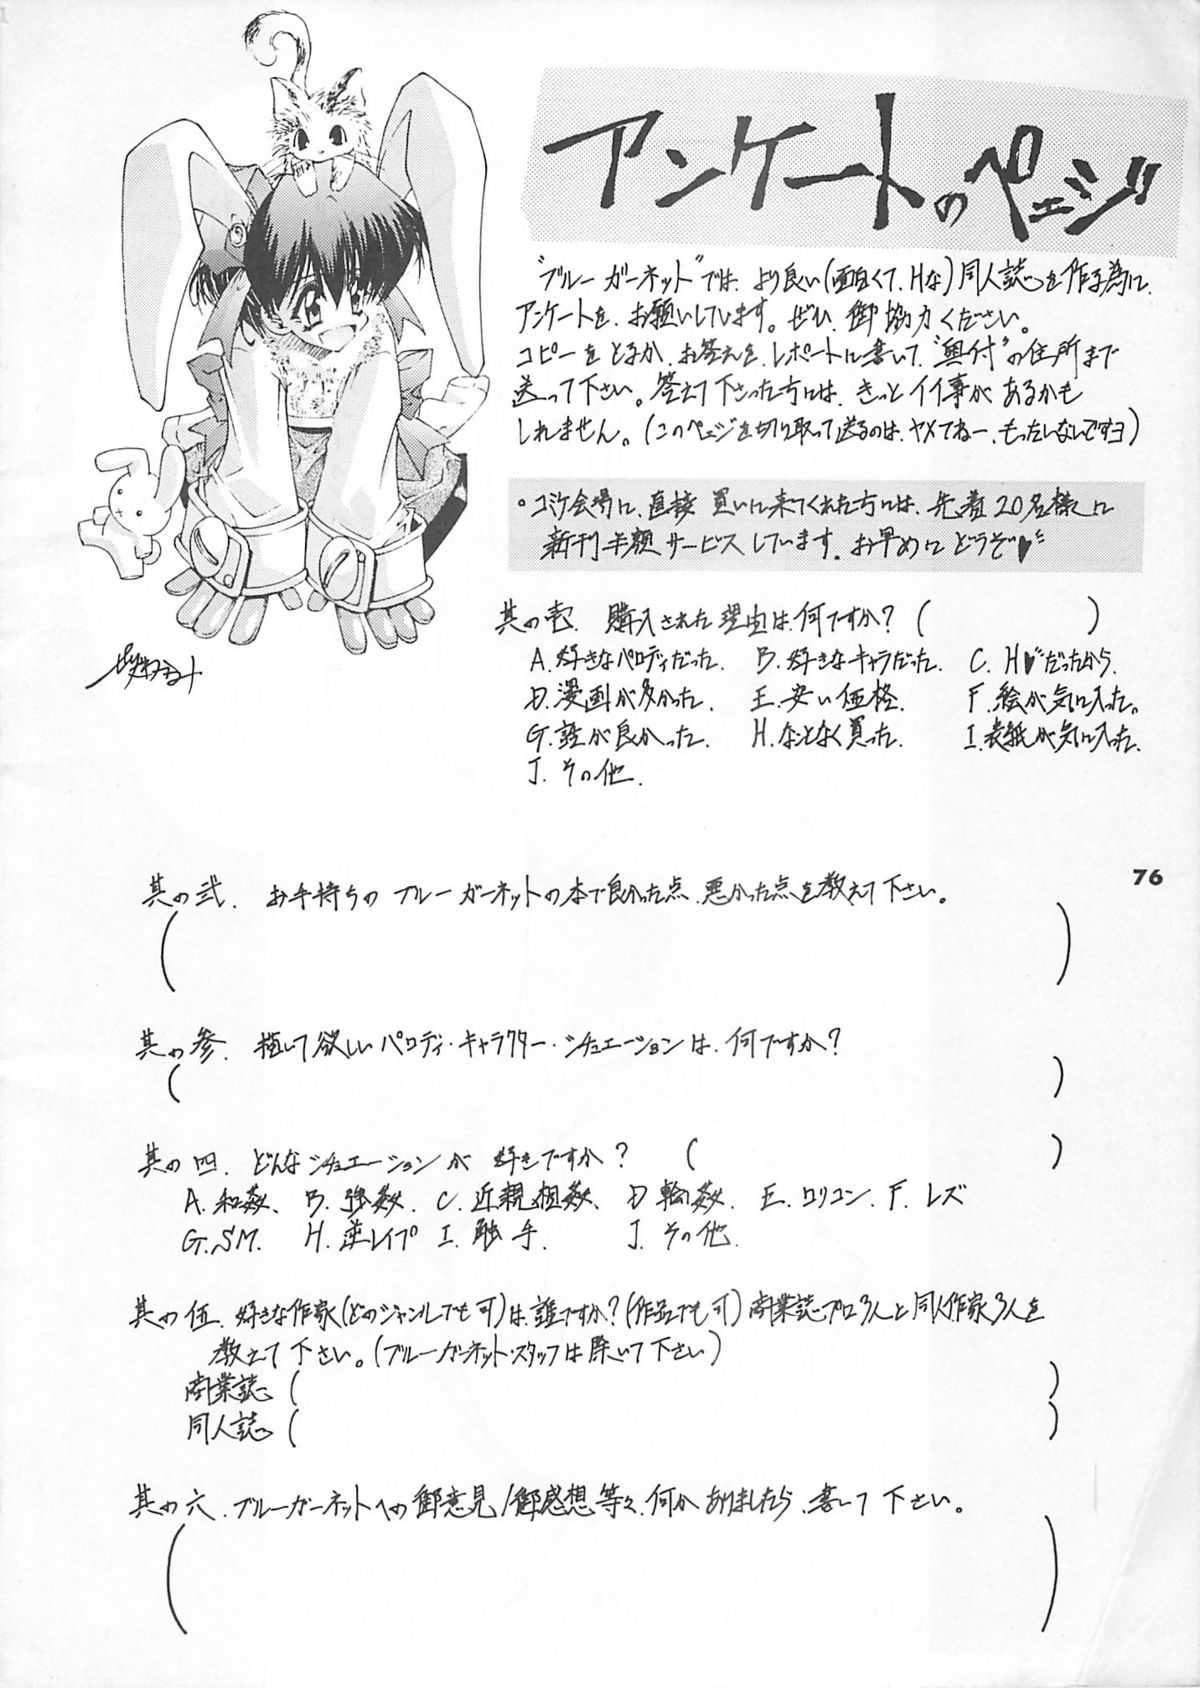 アンケートのペェジ
"ブルーガーネット"では、より良い(面白くて、Hな)同人誌を作る為に、
アンケートを、お願いしています。ぜひ、御協力ください。
コピーをとるか、お答えを、レポートに書いて、"奥付"の住所まで
送って下さい。答えて下さった方には、きっとイイ事が、あるかも
しれません。(このペェジを切り取って送るのは、ヤメてねー、もったいないですヨ)
・コミケ会場に、直接買いに来てくれた方には、先着20名様に
新刊半額サービスしています。お早めにどうぞ♥
其の壱. 購入された理由は、何ですか?( )
A. 好きなパロディだった. B. 好きなキャラだった. C. H♥だったから.
D. 漫画が多かった. E. 安い価格. F. 絵が気に入った。
G. 話が良かった. H. なんとなく買った. I. 表紙が気に入った.
J. その他.
76
其の弐. お手持ちのブルーガーネットの本で良かった点、悪かった点を教えて下さい。
( )
其の参. 描いて欲しいパロディ・キャラクター・シチュエーションは、何ですか?
( )
其の四. どんなシチュエーションが好きですか? ( )
A. 和姦. B. 強姦. C. 近親相姦. D. 輪姦. E. ロリコン. F. レズ
G. SM. H. 逆レイプ I. 触手. J. その他.
其の伍. 好きな作家(どのジャンルでも可)は、誰ですか?(作品でも可)商業誌プロ3人と同人作家3人を
教えて下さい。(ブルーガーネット・スタッフは除いて下さい)
商業誌 ( )
同人誌 ( )
其の六. ブルーガーネットへの御意見/御感想等々、何かありましたら、書いて下さい。
( )